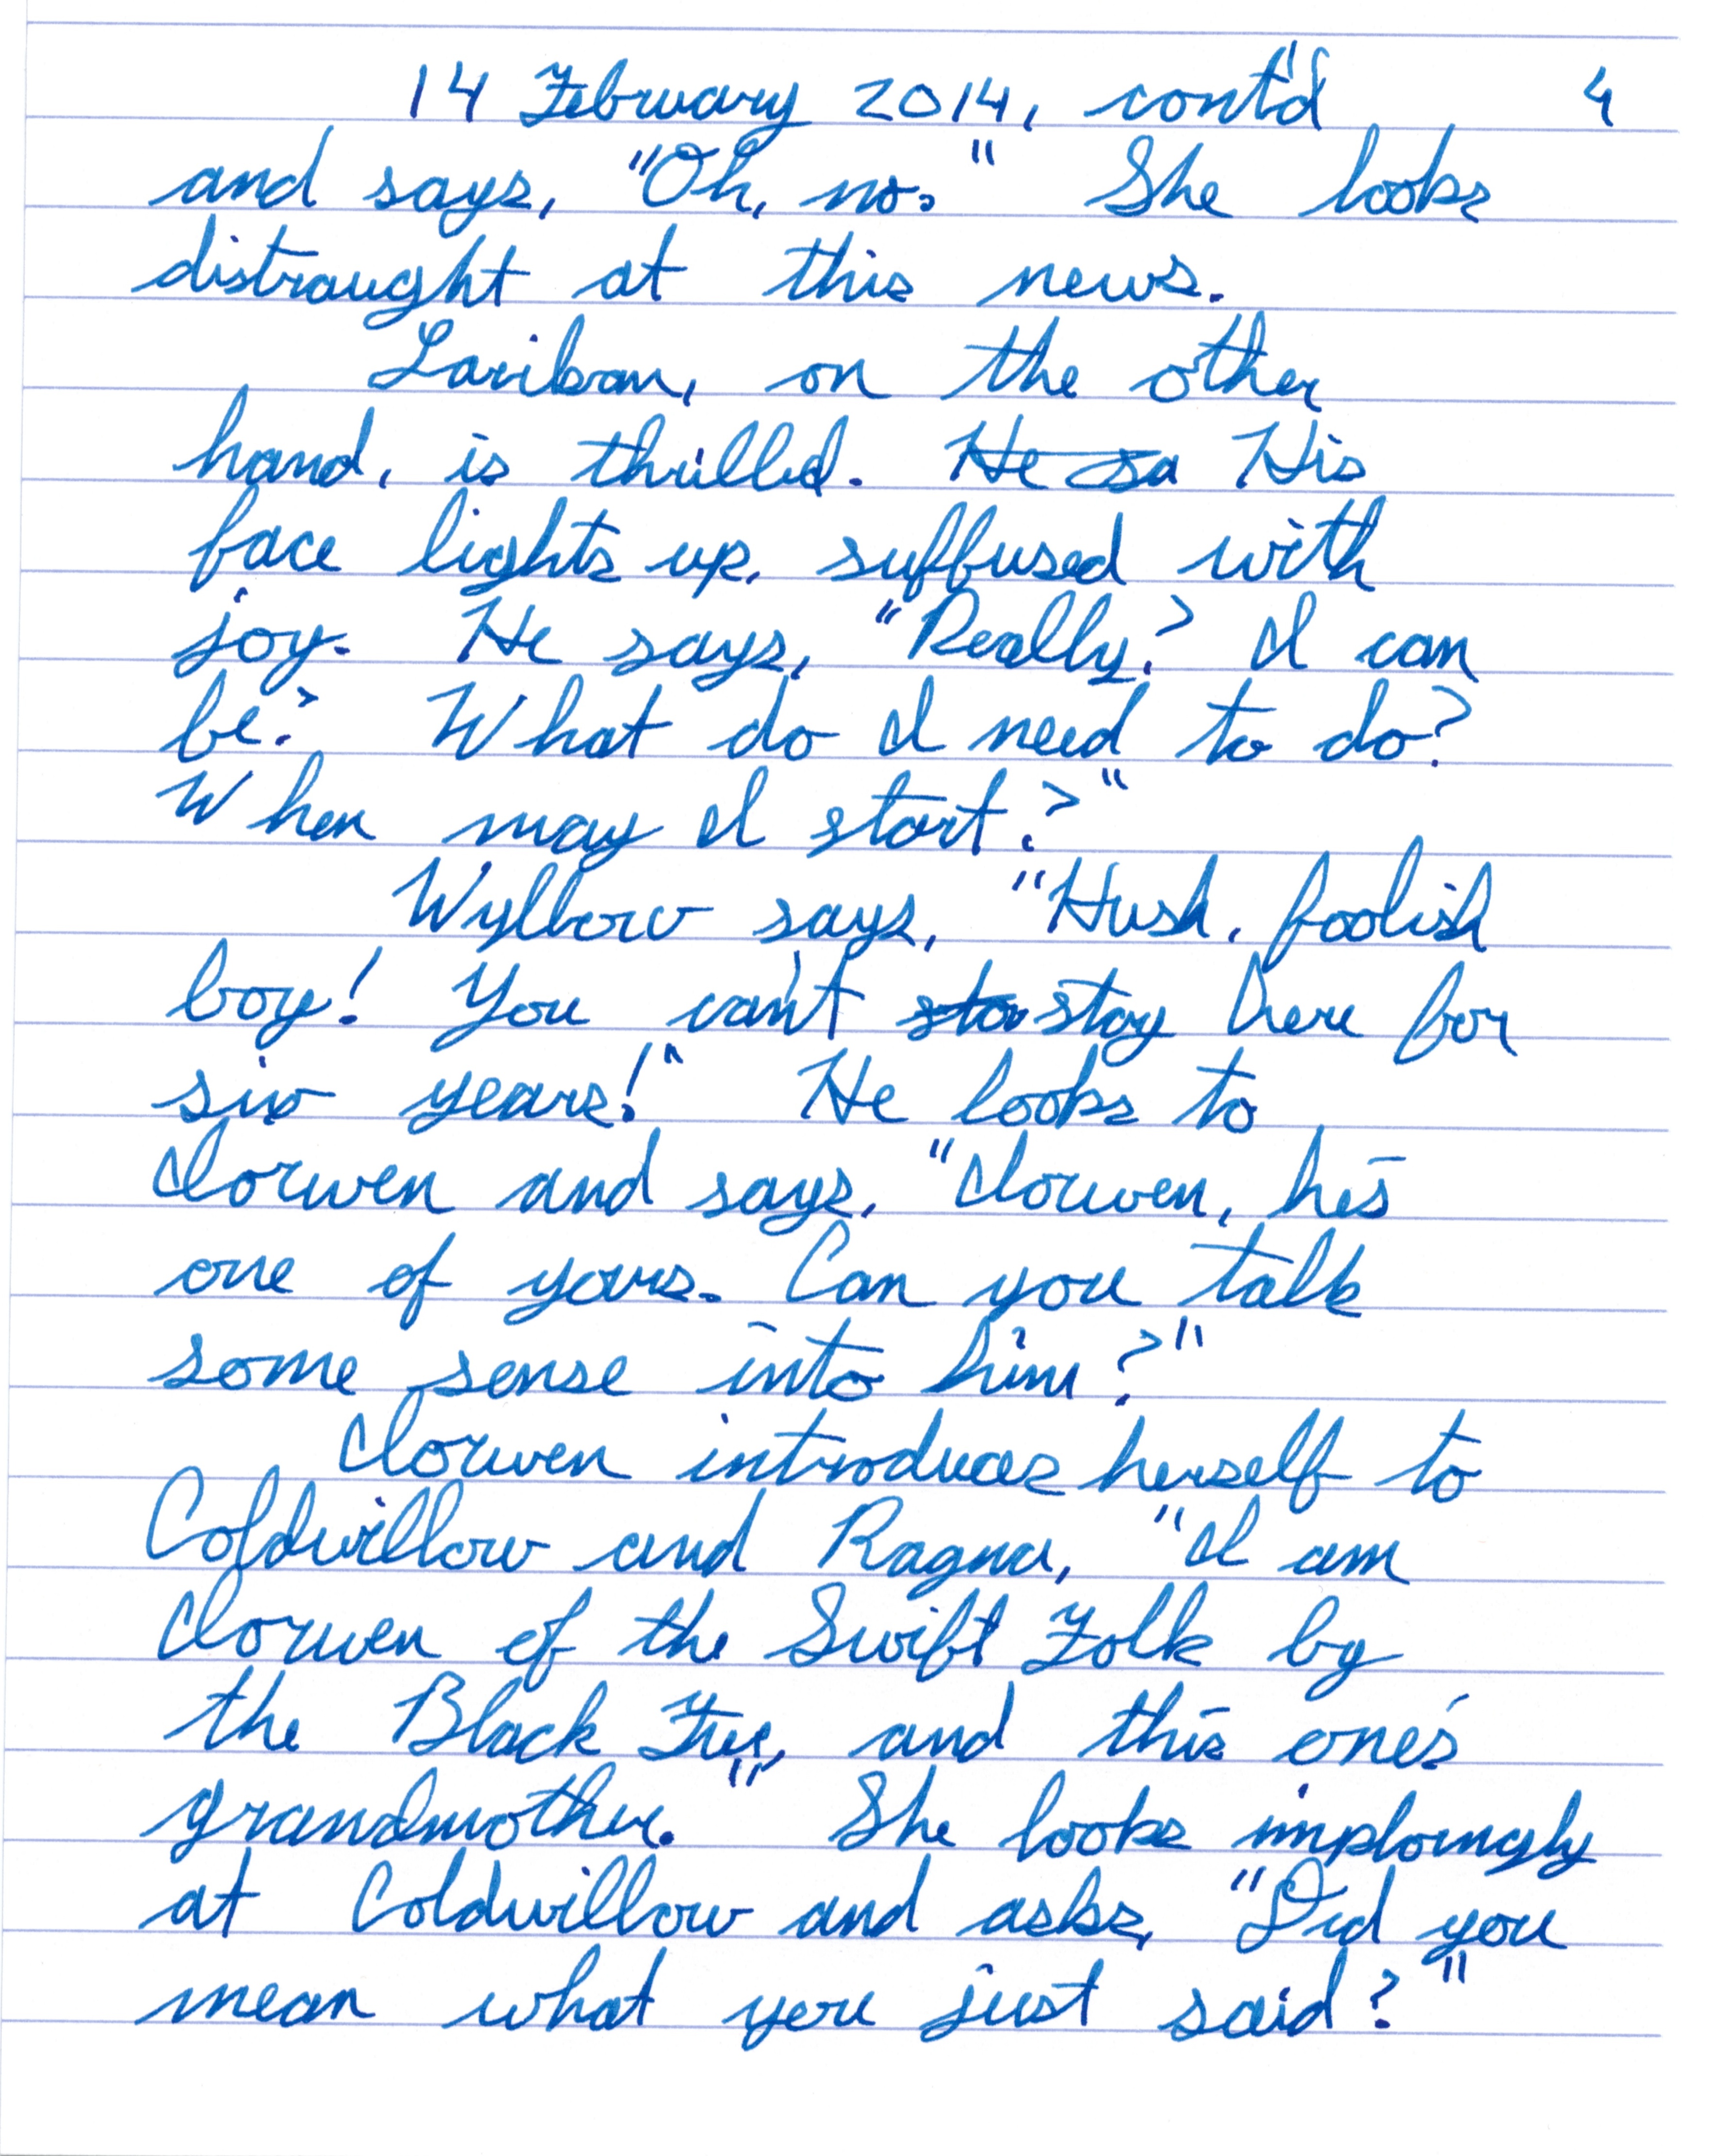 14 February 2014, cont'd 4
and says, "Oh, no." She looks
distraught at this news.
Larikan, on the other
hand, is thrilled. He sa His
face lights up, suffused with
joy. He says, "Really? I can
be? What do I need to do?
When may I start?"
Wylbow says, "Hush, foolish
boy! You can't sta stay here for
six years!" He looks to
Clorwen and says, "Clorwen, he's
one of yours. Can you talk
some sense into him?"
Clorwen introduces herself to
Coldwillow and Ragna, "I am
Clorwen of the Swift Folk by
the Black Tree, and this one's
grandmother." She looks imploringly
at Coldwillow and asks, "Did you
mean what you just said?"